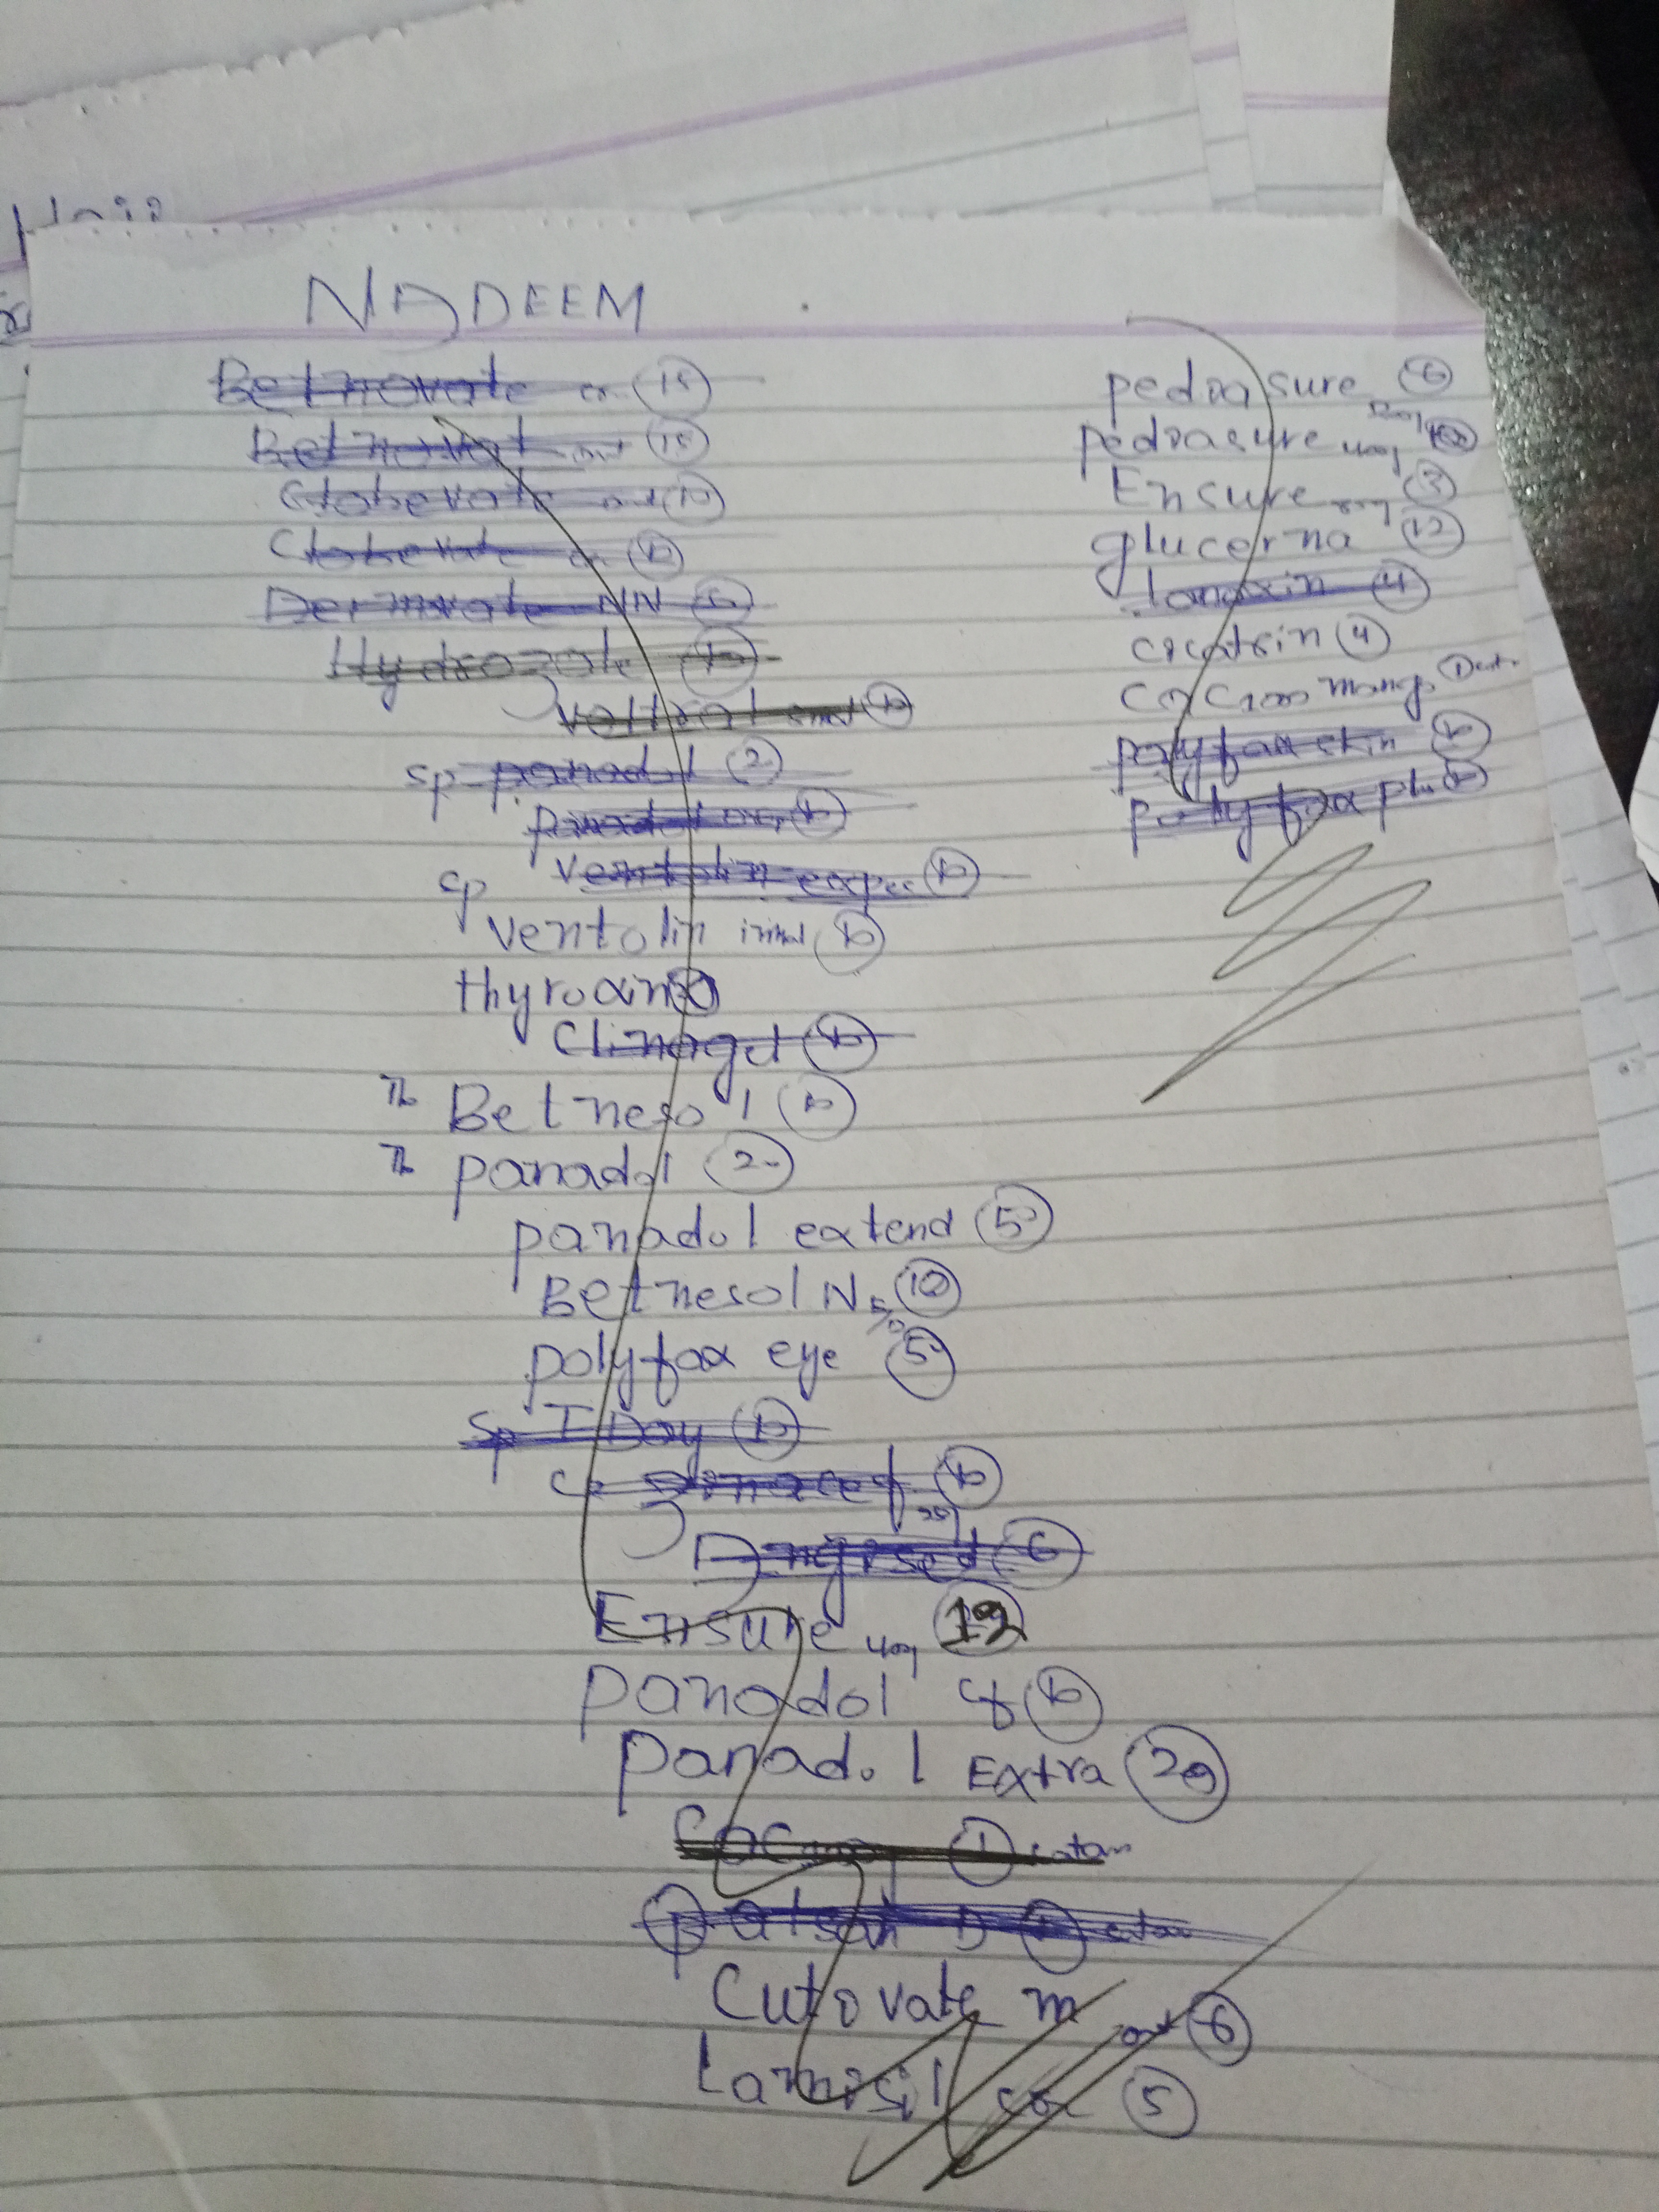 NADEEM
Betnovate cr 15
Betnovat oint 15
Clobevate oint 10
Clobevate cr 10
Dermovate NN 6
Hydrozole 10
voltral emul 10
sp panadol 2
panadol 10
sp ventolin expec 10
ventolin inhal 10
thyroxin
Clinagel 10
Tb Betnesol 10
Tb panadol 20
panadol extend 5
Betnesol N E/D 10
polyfax eye 5
Sp T Day 10
10
6
Ensure 400g 12
panadol cf 10
panadol Extra 20
1
D
Cutovate m oint 6
Lamisil 5
pediasure 6
pediasure 400g
Ensure 3
glucerna 12
lanoxin 4
cicatrin 4
polyfax skin 10
polyfax plus 10